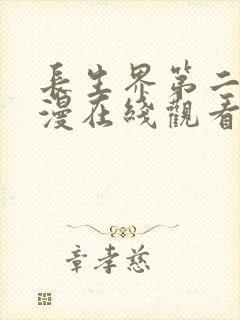 長生界第二
漫在綫觀看
章孝慈